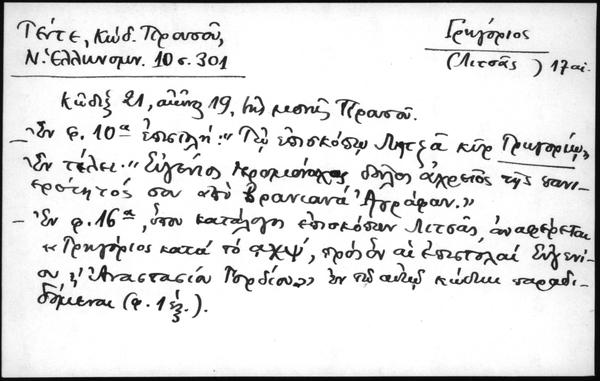 Γέντε, Κώδ. Πρασοῦ,
Ν. Ἑλληνομν. 10 σ. 301
Γρηγόριος
(Λιτσᾶς) 17 αἰ.
Κῶδιξ 21, αἰῶνος 19, τῆς μονῆς Πρασοῦ.
– Ἐν φ. 10α ἐπιστολή: "Τῷ ἐπισκόπῳ Λητζᾶ κὺρ Γρηγορίῳ"
Ἐν τέλει: "Εὐγένιος ἱερομόναχος δοῦλος ἀχρεῖος τῆς πανι-
ερότητός σου ἀπὸ Βρανιανὰ Ἀγράφων."
– Ἐν φ. 16α, ὅπου κατάλογος ἐπισκόπων Λιτσᾶς, ἀναφέρεται
"Γρηγόριος κατὰ τὸ αχψ', πρὸς ὃν αἱ ἐπιστολαὶ Εὐγενί-
ου κ' Ἀναστασίου Γορδίου" ἐν τῷ αὐτῷ κώδικι παραδι-
δόμεναι (φ. 1 ἑξ.).